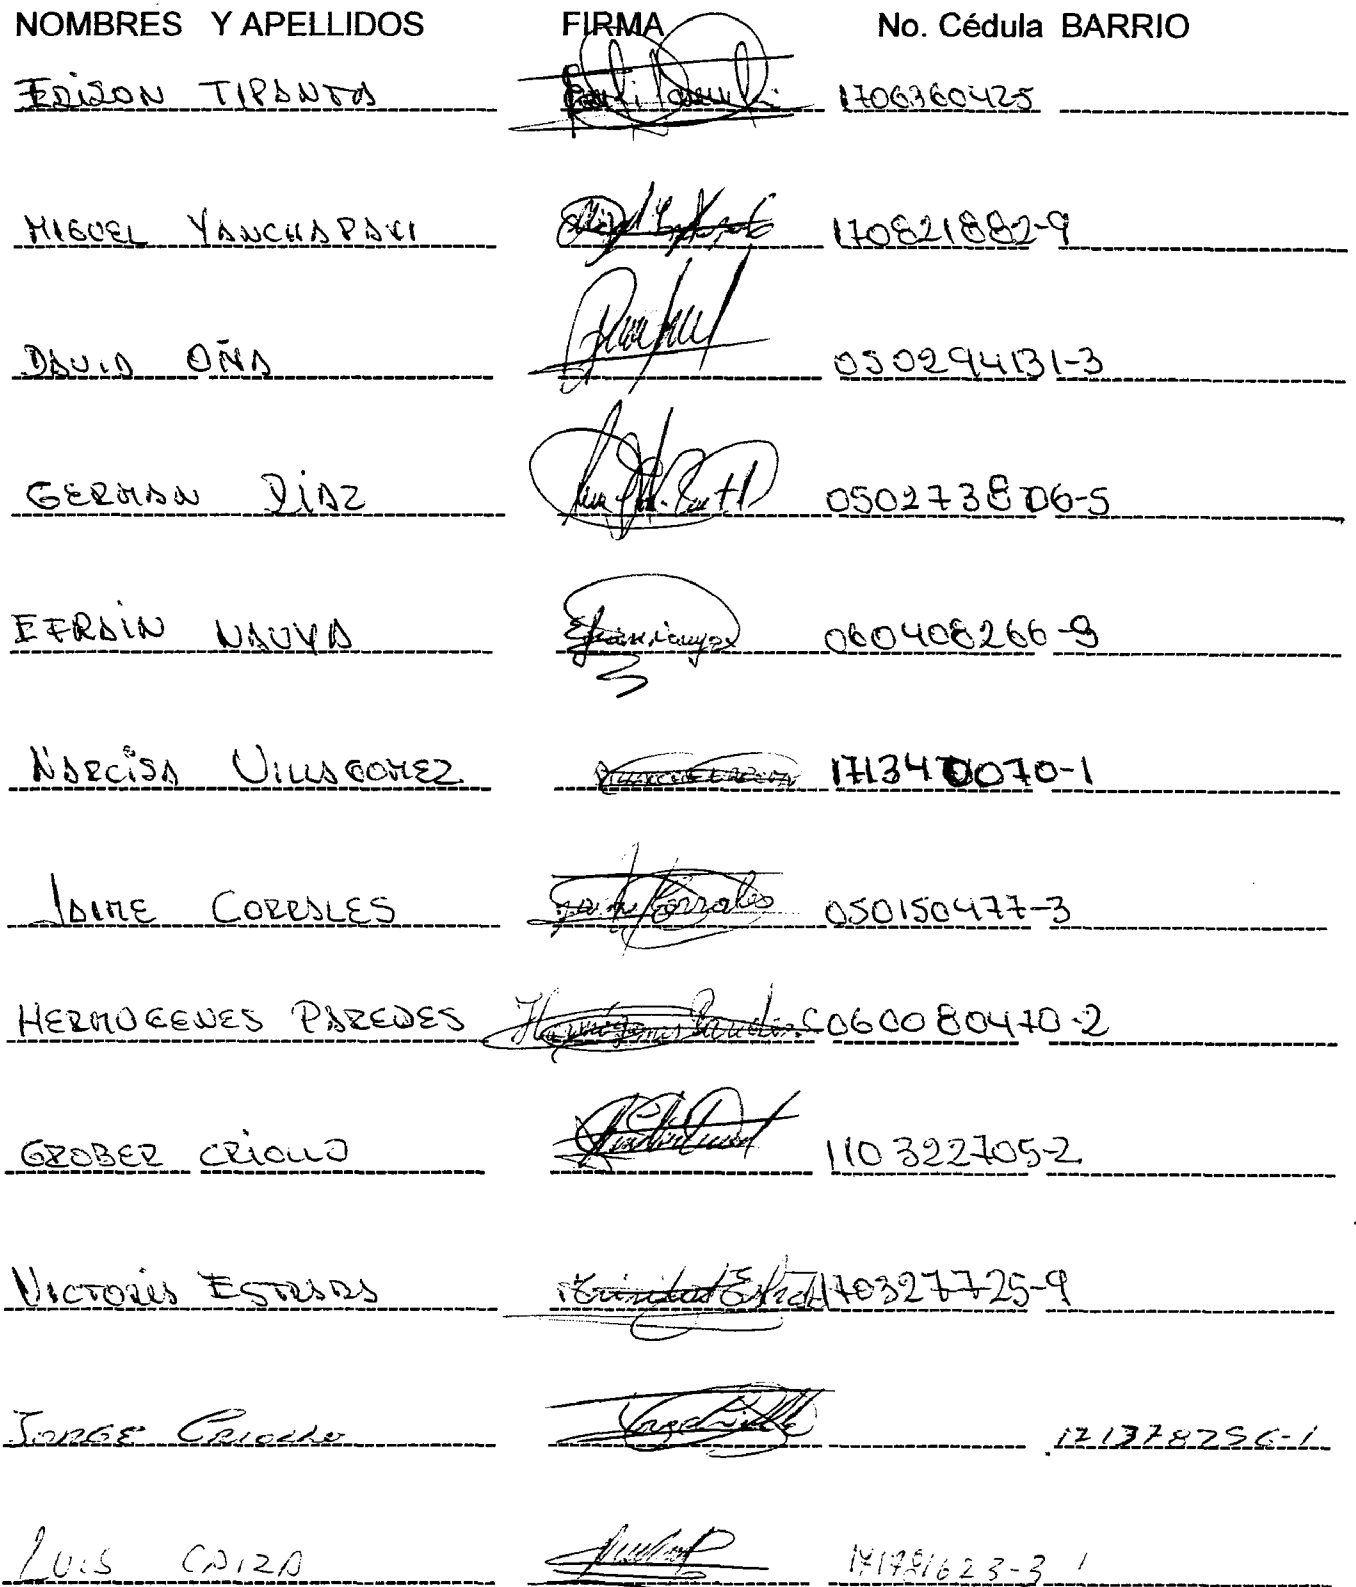 NOMBRES Y APELLIDOS FIRMA No. Cédula BARRIO
EDIZON TIPANTA 1706360425
MIGUEL YANCHAPAXI 170821882-9
DAVID OÑA 050294131-3
GERMAN DÍAZ 050273806-5
EFRAIN NAUYA 060408266-9
NARCISA VILLAGOMEZ 1713470070-1
JAIME CORRALES Jaime Corrales 050150477-3
HERMOGENES PAREDES Hermógenes Paredes C 060080470-2
GROBER CRIOLLO 110322705-2
VICTORIA ESTRADA 170327725-9
JORGE CRIOLLO 171378256-1
LUIS CAIZA